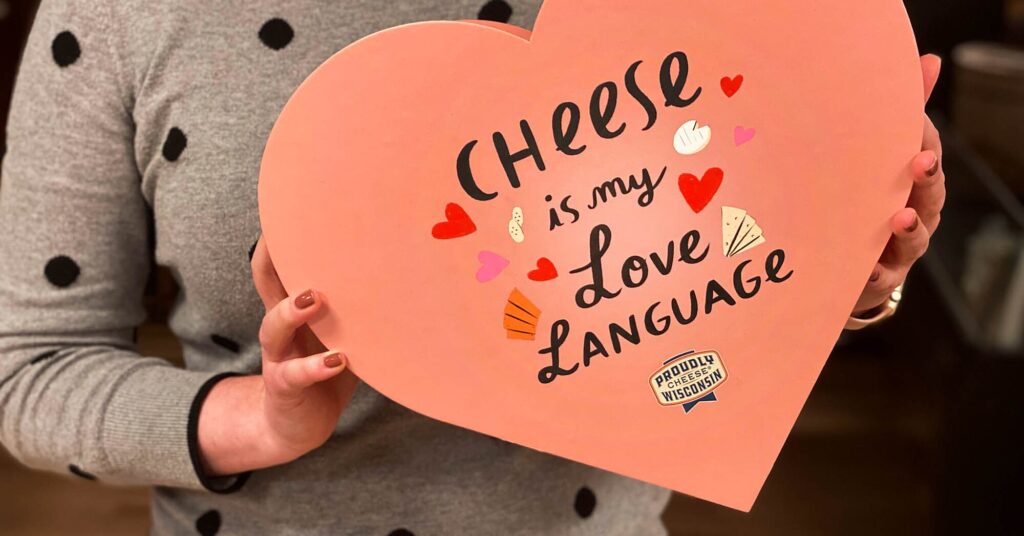 CHeese
is my
Love
LANGUAGe
PROUDLY
CHEESE®
WISCONSIN